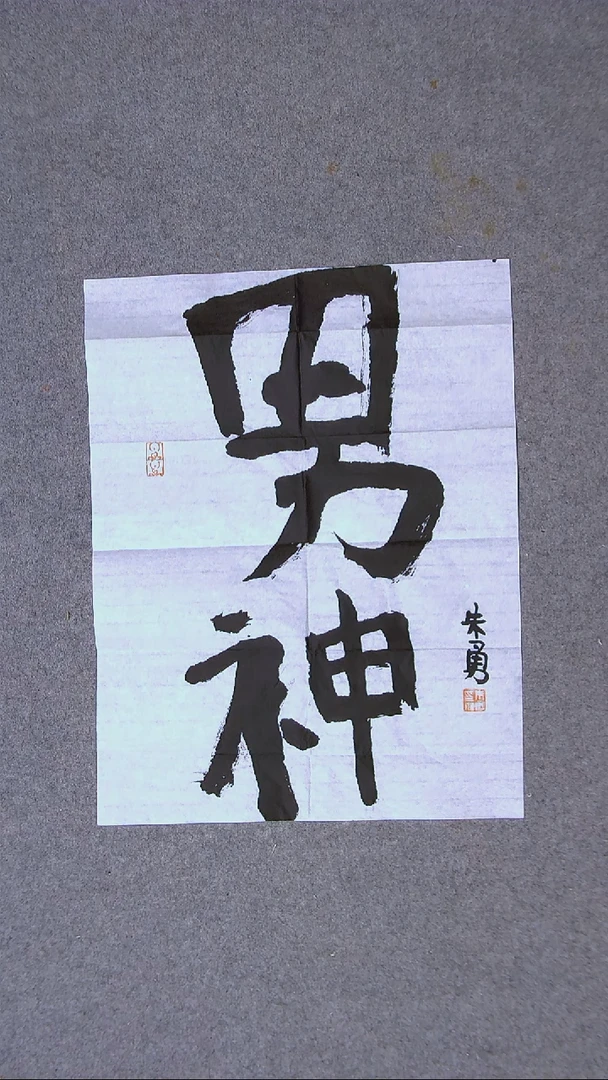 男神
朱勇